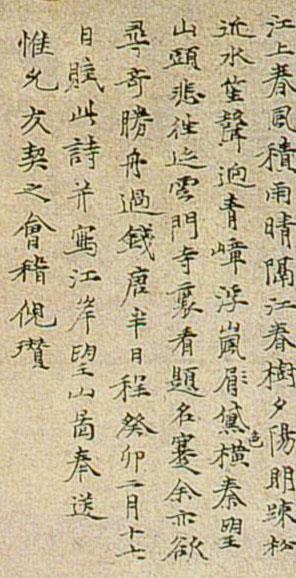 江上春風積雨晴隔江春樹夕陽明踈松
近水笙聲迥青嶂浮嵐眉黛色橫秦望
山頭悲往迹雲門寺裏看題名蹇余亦欲
尋奇勝舟過錢唐半日程癸卯二月十七
日賦此詩并寫江岸望山啚奉送
惟允友契之會稽倪瓚